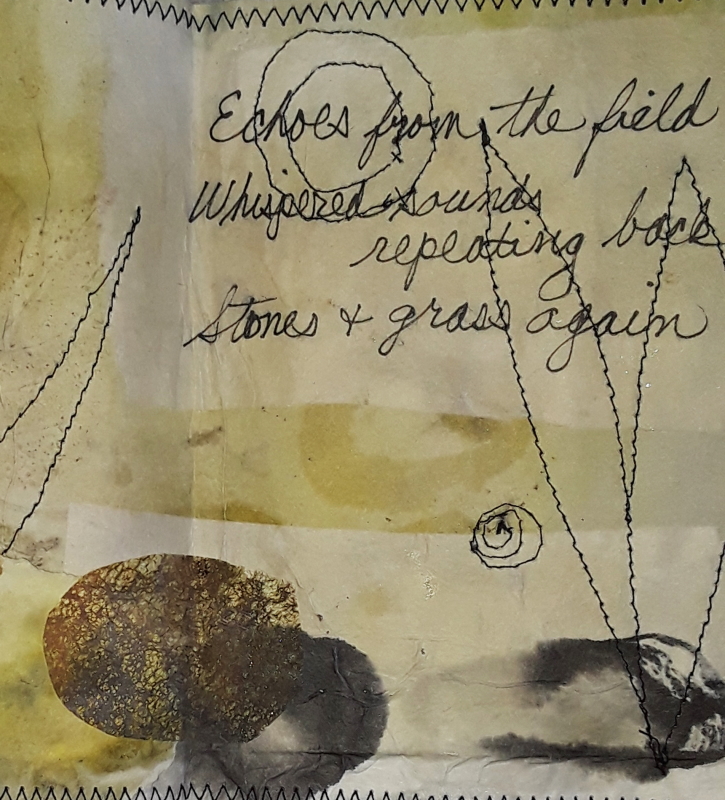 Echoes from the field
Whispered sounds
repeating back
Stones & grass again